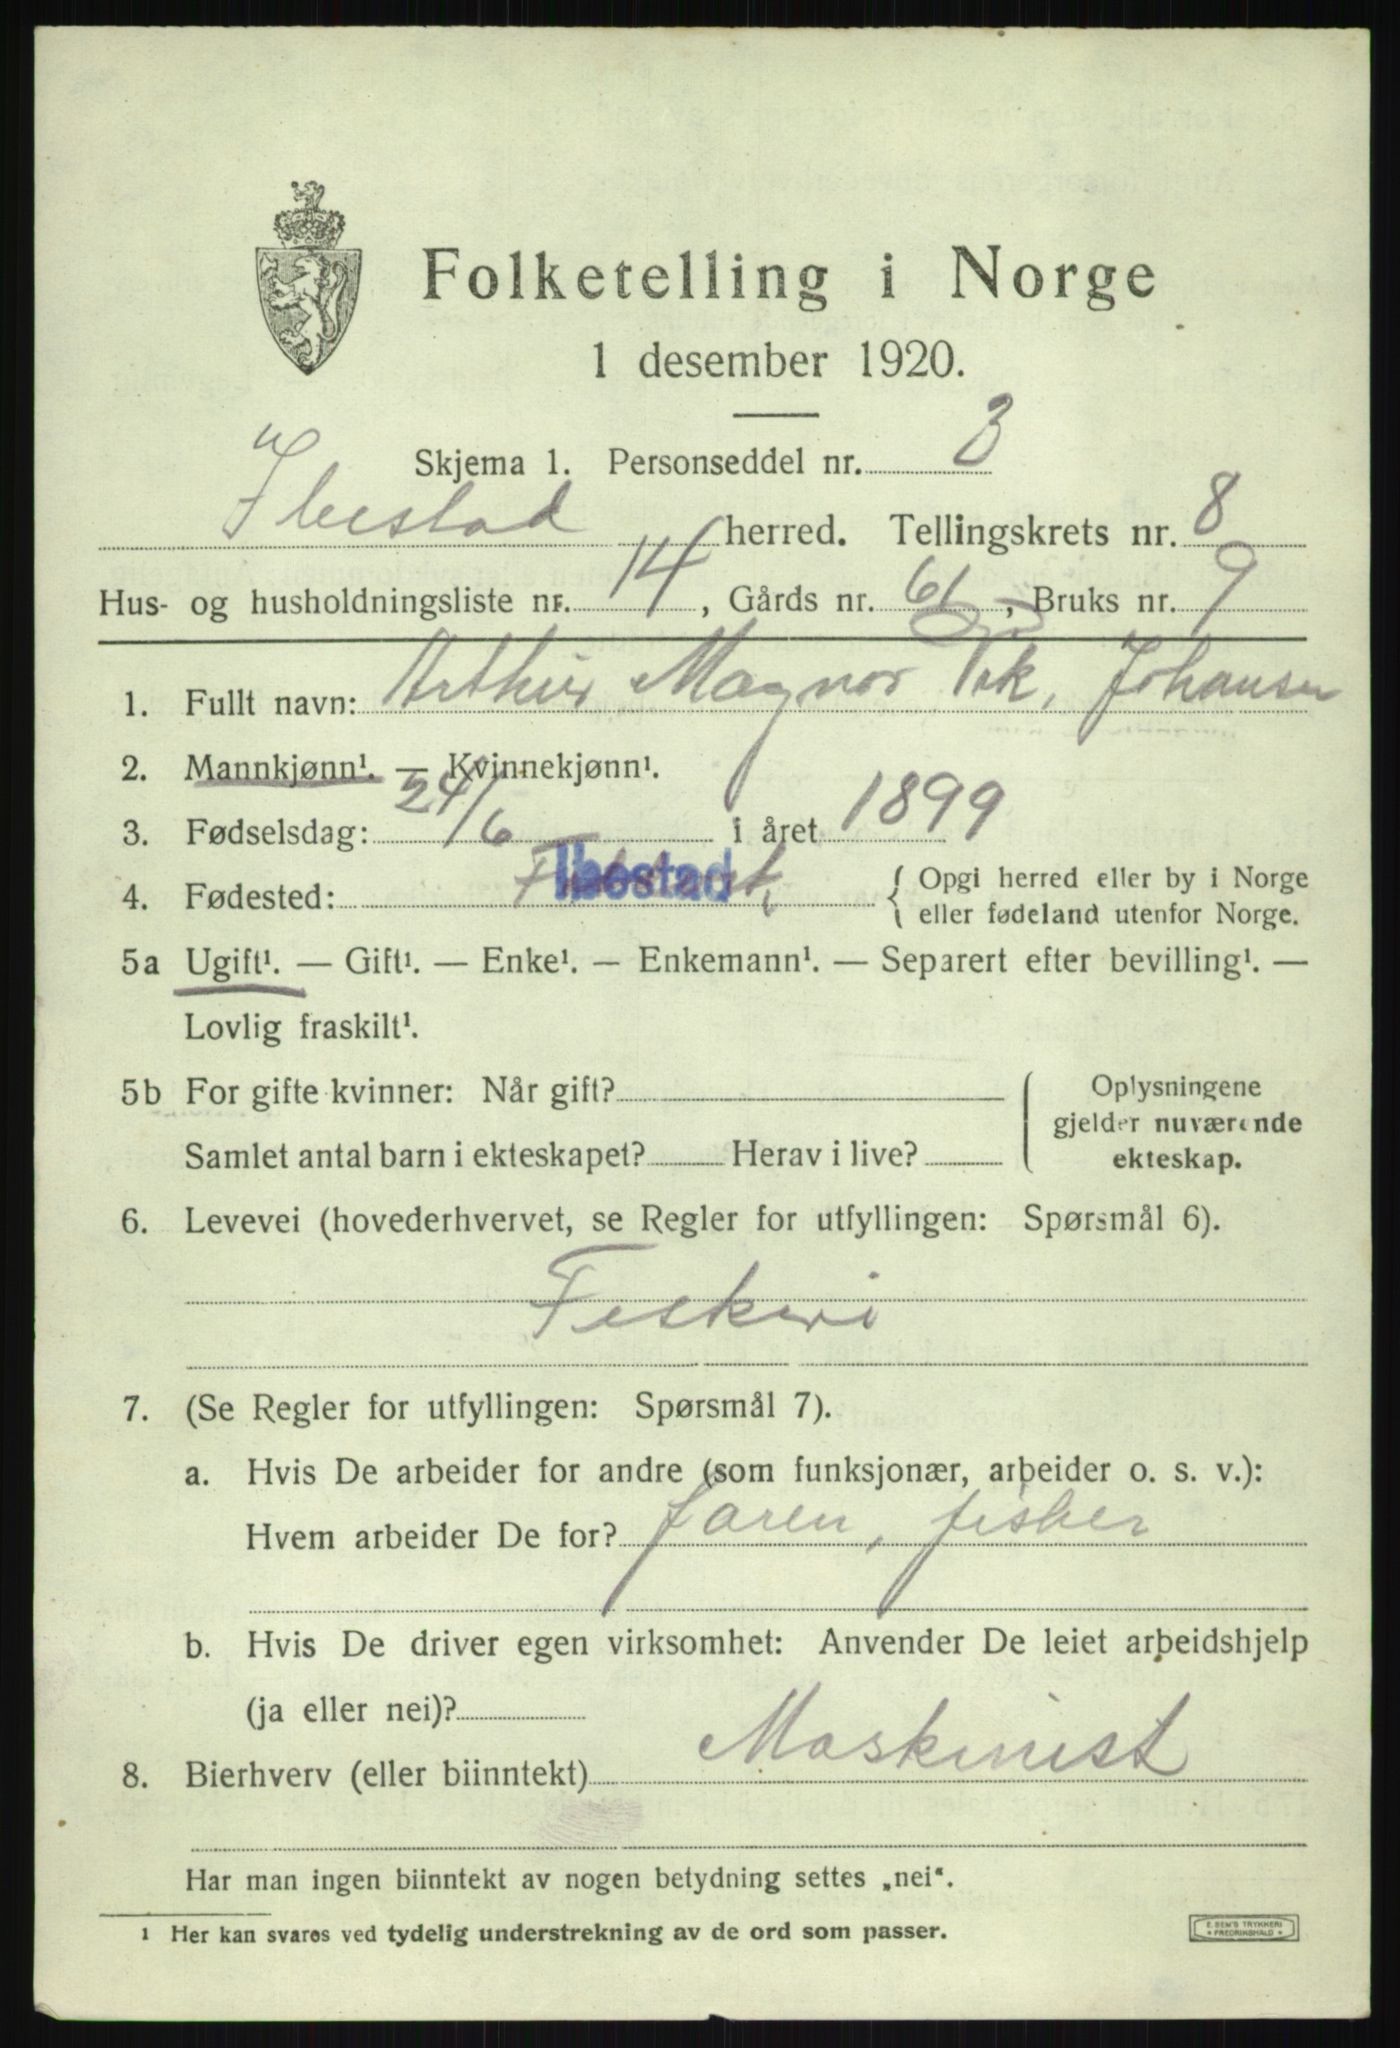 Folketelling i Norge
1 desember 1920.
Skjema 1. Personseddel nr. 3
Ibestad herred. Tellingskrets nr. 8
Hus- og husholdningsliste nr. 14, Gårds nr. 61, Bruks nr. 9
1. Fullt navn: Arthur Magnor Johansen
2. Mannkjønn¹. — Kvinnekjønn¹.
3. Fødselsdag: 24/6 i året 1899
4. Fødested: Ibestad { Opgi herred eller by i Norge
eller fødeland utenfor Norge.
5a Ugift¹. — Gift¹. — Enke¹. — Enkemann¹. — Separert efter bevilling¹. —
Lovlig fraskilt¹.
5b For gifte kvinner: Når gift? Oplysningene
gjelder nuværende
Samlet antal barn i ekteskapet? Herav i live? ekteskap.
6. Levevei (hovederhvervet, se Regler for utfyllingen: Spørsmål 6).
Feskeri
7. (Se Regler for utfyllingen: Spørsmål 7).
a. Hvis De arbeider for andre (som funksjonær, arbeider o. s. v.):
Hvem arbeider De for? faren, fisker
b. Hvis De driver egen virksomhet: Anvender De leiet arbeidshjelp
(ja eller nei)?
8. Bierhverv (eller biinntekt) Maskinist
Har man ingen biinntekt av nogen betydning settes „nei“.
¹ Her kan svares ved tydelig understrekning av de ord som passer.
E. SEM'S TRYKKERI
* FREDRIKSHALD *